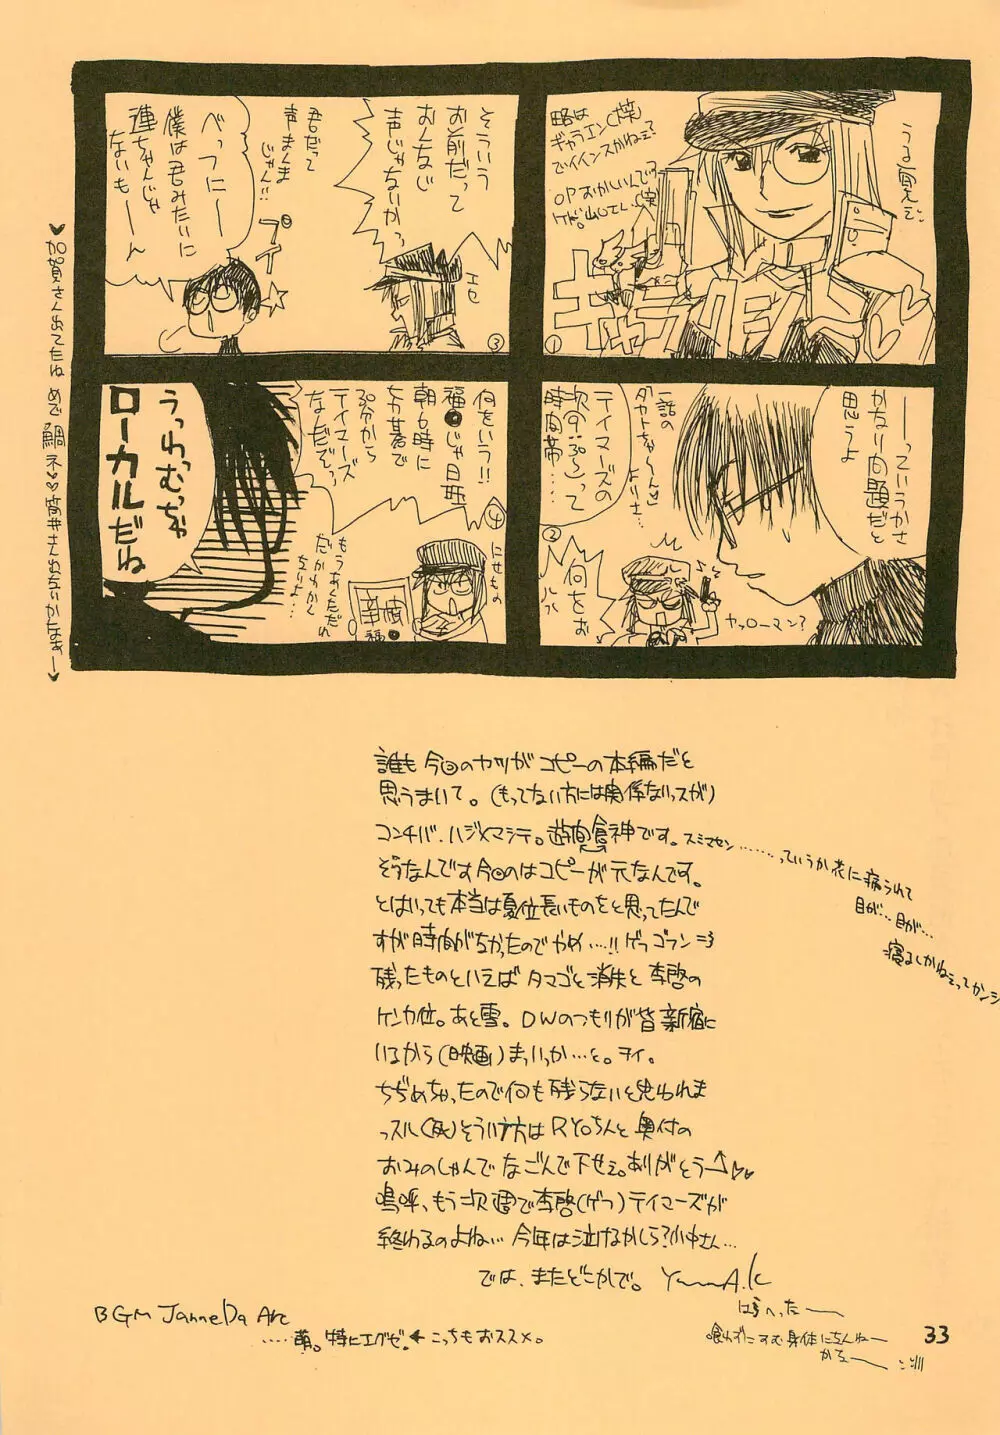 うる覚えで。
略は
ギャラエン(笑)
でイインスかねぇ?
OPおかしいんで
キャラ
①
――っていうかさ
かなり問題だと
思うよ
一話の
よりさ…
テイマーズの
次の
時間帯‥‥
②
何をお
ヤッローマン?
そういう
お前だって
おんなじ
声じゃないかっ
エセ
君だって
声まんま
じゃん!!
プイ
べっつにー
僕は君みたいに
健ちゃんじゃ
ないもーん
③
何をいう!!
福●じゃ日曜
朝6時に
30分から
テイマーズ
なんだぞっ
④
にせもの
もうあくだれ
だかわかん
ないよ…
幸
福●
うっわむっちゃ
ローカルだね
加賀さん出てたね めで鯛ネ♡
誰も今回のヤツがコピーの本編だと
思うまいて。(もってない方には関係ないっスが)
コンチバ.ハジメマシテ。遊食神です。スミマセン………っていうか花に病られて
目が…目が…
寝るしかねぇってカンジ
そうなんです今回のはコピーが元なんです。
とはいっても本当は夏位長いものをと思ってたんで
すが時間がなかったのでやめ…!!ゲフゴフン=3
残ったものといえばタマゴと消失と李啓の
ケンカ位。あと雪。DWのつもりが皆新宿に
いるから(映画)まっいっか…と。ヲイ。
ちぢめちゃったので何も残らないと思われま
っスル(死)そういう方はRYOちんと奥付の
おみのしゃんでなごんで下せぇ。ありがとう↑♡♡
嗚呼、もう次週で李啓(ゲフ)テイマーズが
終わるのよね… 今年は泣けるかしら?小中さん…
では、またどこかで。
はらへったー
喰わずにすむ身体になんねー
かなー
BGM JanneDa Arc
……萌。特にエグゼ! ← こっちもおススメ。
33